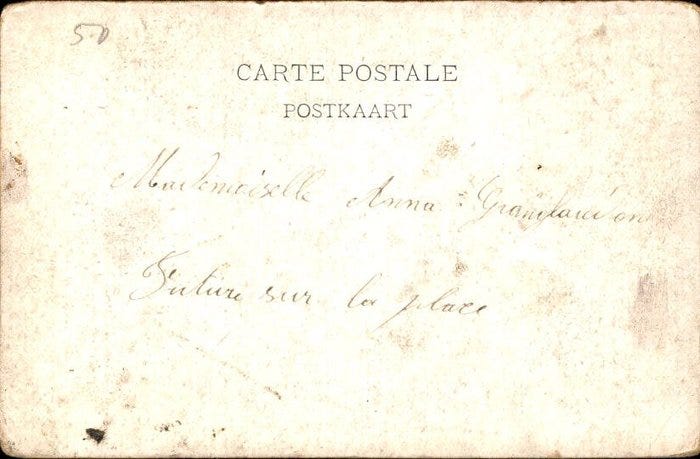 50
CARTE POSTALE
POSTKAART
Mademoiselle Anna
sur la place